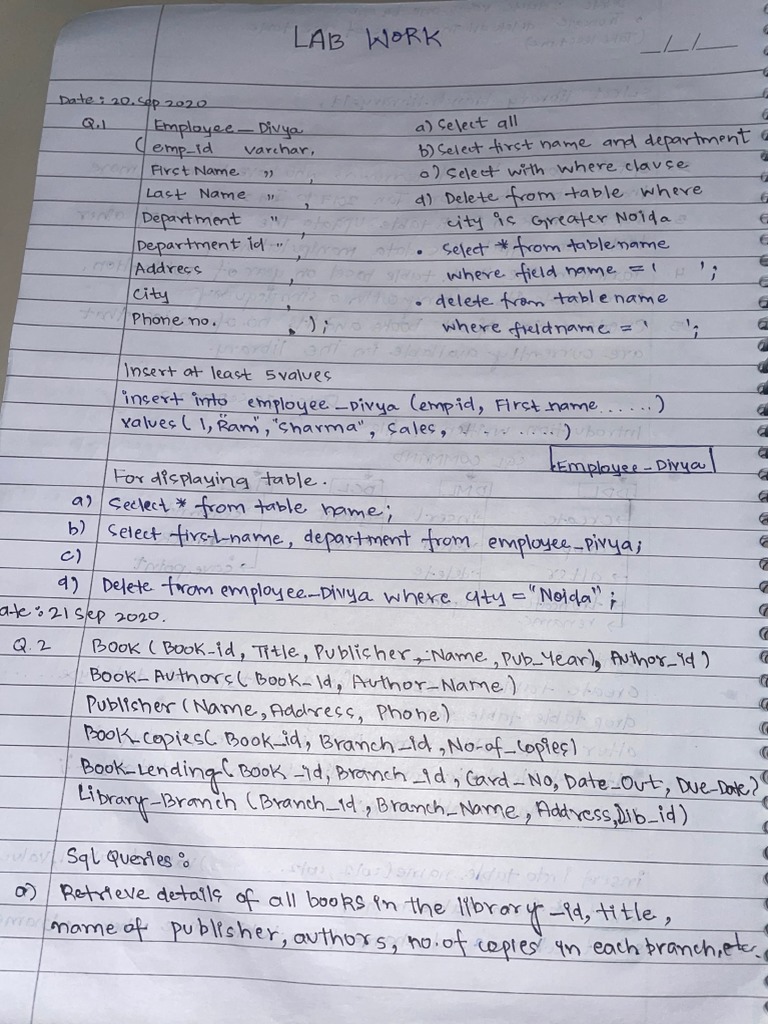 LAB WORK
Date: 20. Sep 2020
Q.1 Employee_Divya
( emp_id varchar,
First Name ",
Last Name ",
Department ",
Department id ",
Address ,
City ,
Phone no. , );
a) Select all
b) Select first name and department
c) Select with where clause
d) Delete from table where
city is Greater Noida
• Select * from tablename
where field name = ' ';
• delete from table name
where fieldname = ' ';
Insert at least 5 values
insert into employee_Divya (empid, First name......)
values ( 1, "Ram", "Sharma", Sales, ..........)
Employee_Divya
For displaying table.
a) Seclect * from table name;
b) Select first-name, department from employee_Divya;
c)
d) Delete from employee_Divya where city = "Noida";
ate: 21 Sep 2020.
Q.2 Book (Book_id, Title, Publisher_Name, Pub_Year), Author_id)
Book_Authors( Book_Id, Author_Name)
Publisher (Name, Address, Phone)
Book_copies( Book_id, Branch_id, No-of_copies)
Book_Lending( Book_id, Branch_id, Card_No, Date_Out, Due_Date)
Library_Branch (Branch_id, Branch_Name, Address, Lib_id)
Sql Queries:
a) Retrieve details of all books in the library_id, title,
name of publisher, authors, no. of copies in each branch, etc.